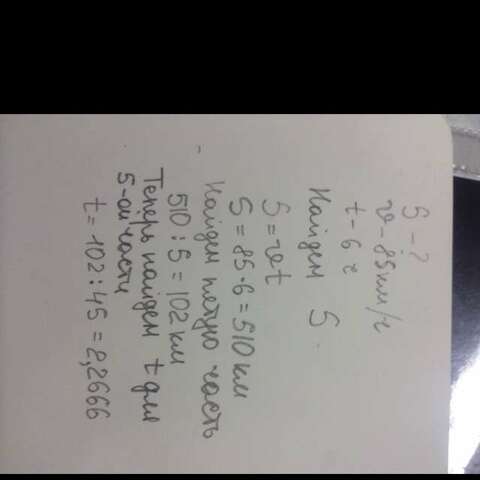 S - ?
v - 85 км/ч
t - 6 ч
Найдем S.
S = vt
S = 85 · 6 = 510 км
Найдем пятую часть
510 : 5 = 102 км
Теперь найдем t для
5-ой части
t = 102 : 45 = 2,2666